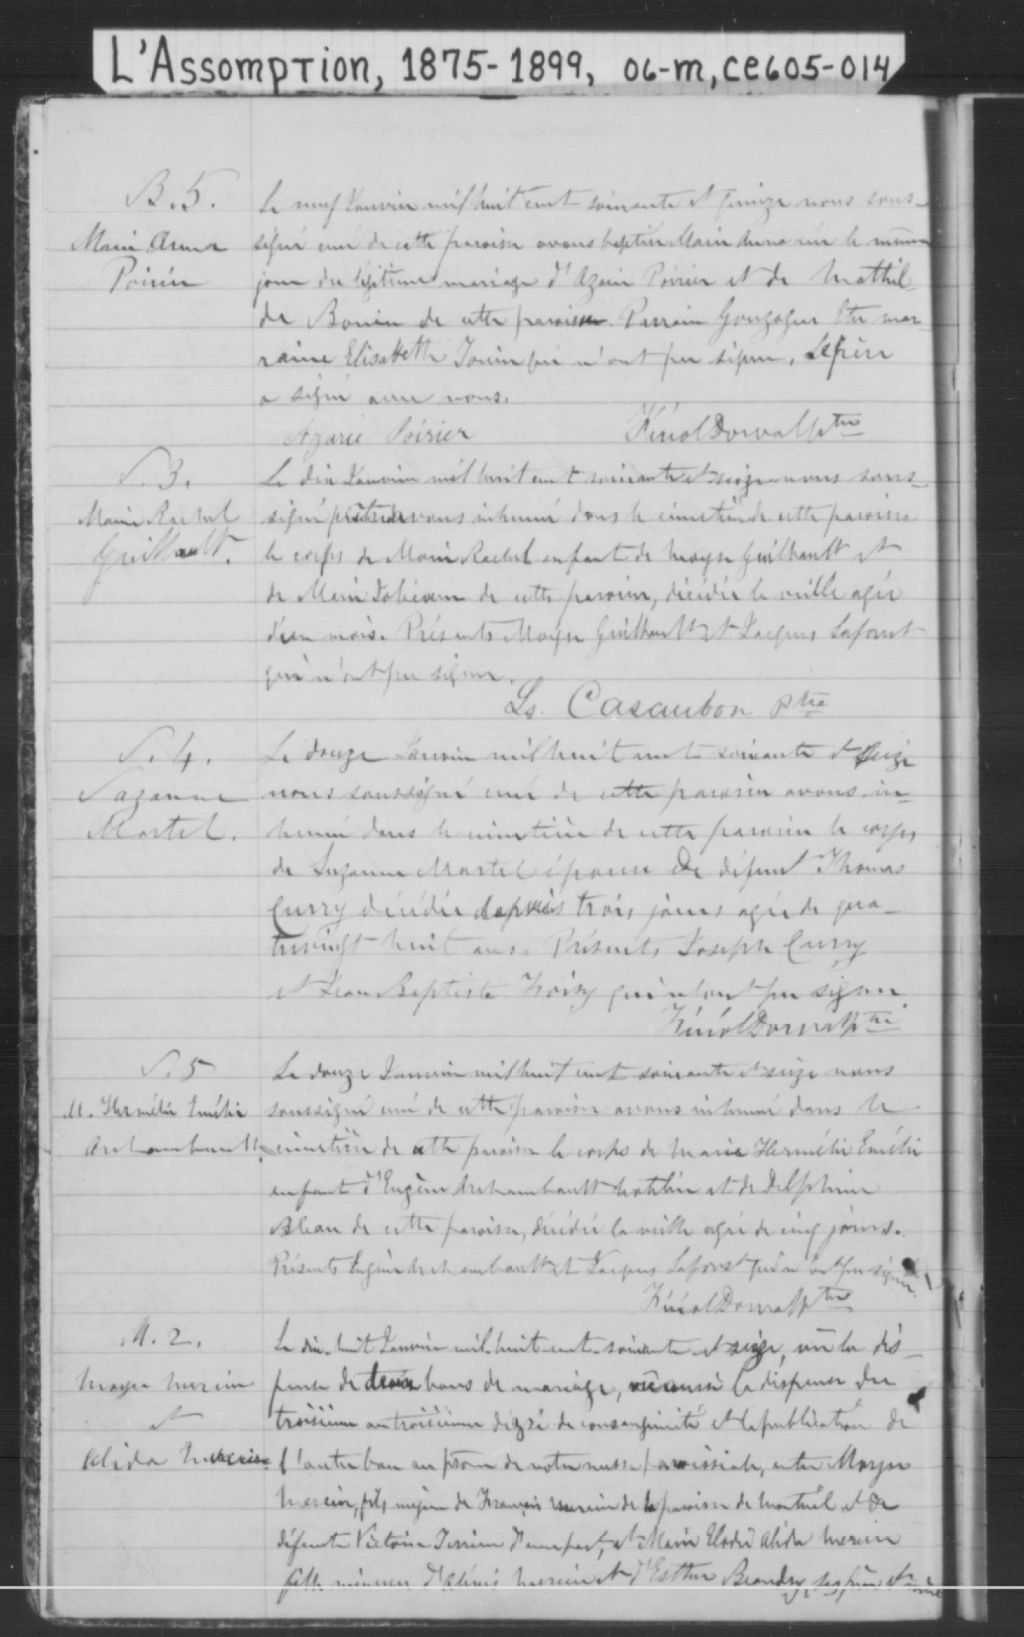 L'Assomption, 1875-1899, 06-m, CE605-014
B. 5.
Marie Anna
Poirier
Le neuf Janvier mil huit cent soixante et quinze nous sous-
signé curé de cette paroisse avons baptisé Marie Anna née le même
jour du légitime mariage d'Azarie Poirier et de Mathil-
de Bonin de cette paroisse. Parrain Gonzague mar-
raine Elisabeth qui n'ont pu signer. Le père
a signé avec nous.
Azarie Poirier
Férréol Dorval Ptre
S. 3.
Marie Rachel
Guilbault.
Le dix Janvier mil huit cent soixante et seize nous sous-
signé prêtre avons inhumé dans le cimetière de cette paroisse
le corps de Marie Rachel enfant de Moyse Guilbault et
de Marie de cette paroisse, décédée la veille agée
d'un mois. Présents Moyse Guilbault et Jacques Laforest
qui n'ont pu signer.
Ls. Casaubon ptre
S. 4.
Suzanne
Martel.
Le douze Janvier mil huit cent soixante et seize
nous soussigné curé de cette paroisse avons in-
humé dans le cimetière de cette paroisse le corps
de Suzanne Martel épouse de défunt Thomas
Curry décédée depuis trois jours agée de qua-
trevingt huit ans. Présents Joseph Curry
et Jean Baptiste qui n'ont pu signer
Férréol Dorval Ptre
S. 5
M. Hermélie Emélie
Archambault
Le douze Janvier mil huit cent soixante et seize nous
soussigné curé de cette paroisse avons inhumé dans le
cimetière de cette paroisse le corps de Marie Hermélie Emélie
enfant d'Eugène Archambault et de Delphine
de cette paroisse, décédée la veille agée de cinq jours.
Présents Eugène Archambault et Jacques Laforest qui n'ont pu signer.
Férréol Dorval Ptre
M. 2.
Moyse Mercier
et
Alida Mercier
Le dix-huit Janvier mil huit cent soixante et seize, vu la dis-
pense de deux bans de mariage, vu aussi la dispense du
troisième au troisième dégré de consanguinité et la publication de
l'autre ban au prône de notre messe paroissiale, entre Moyse
Mercier, fils majeur de François Mercier de la paroisse de Montréal et de
défunte Victoire d'une part, et Marie Elodie Alida Mercier
fille mineure d'Alexis Mercier et d'Esther Beaudry, ses père et mère